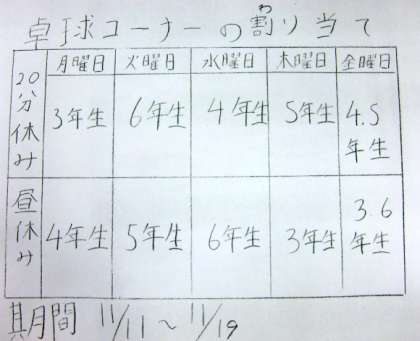 卓球コーナーの割り当て
わ
月曜日 火曜日 水曜日 木曜日 金曜日
20分休み 3年生 6年生 4年生 5年生 4.5年生
昼休み 4年生 5年生 6年生 3年生 3.6年生
期間 11/11～11/19